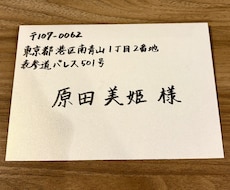 〒107-0062
東京都港区南青山1丁目2番地
表参道パレス501号
原田美姫様